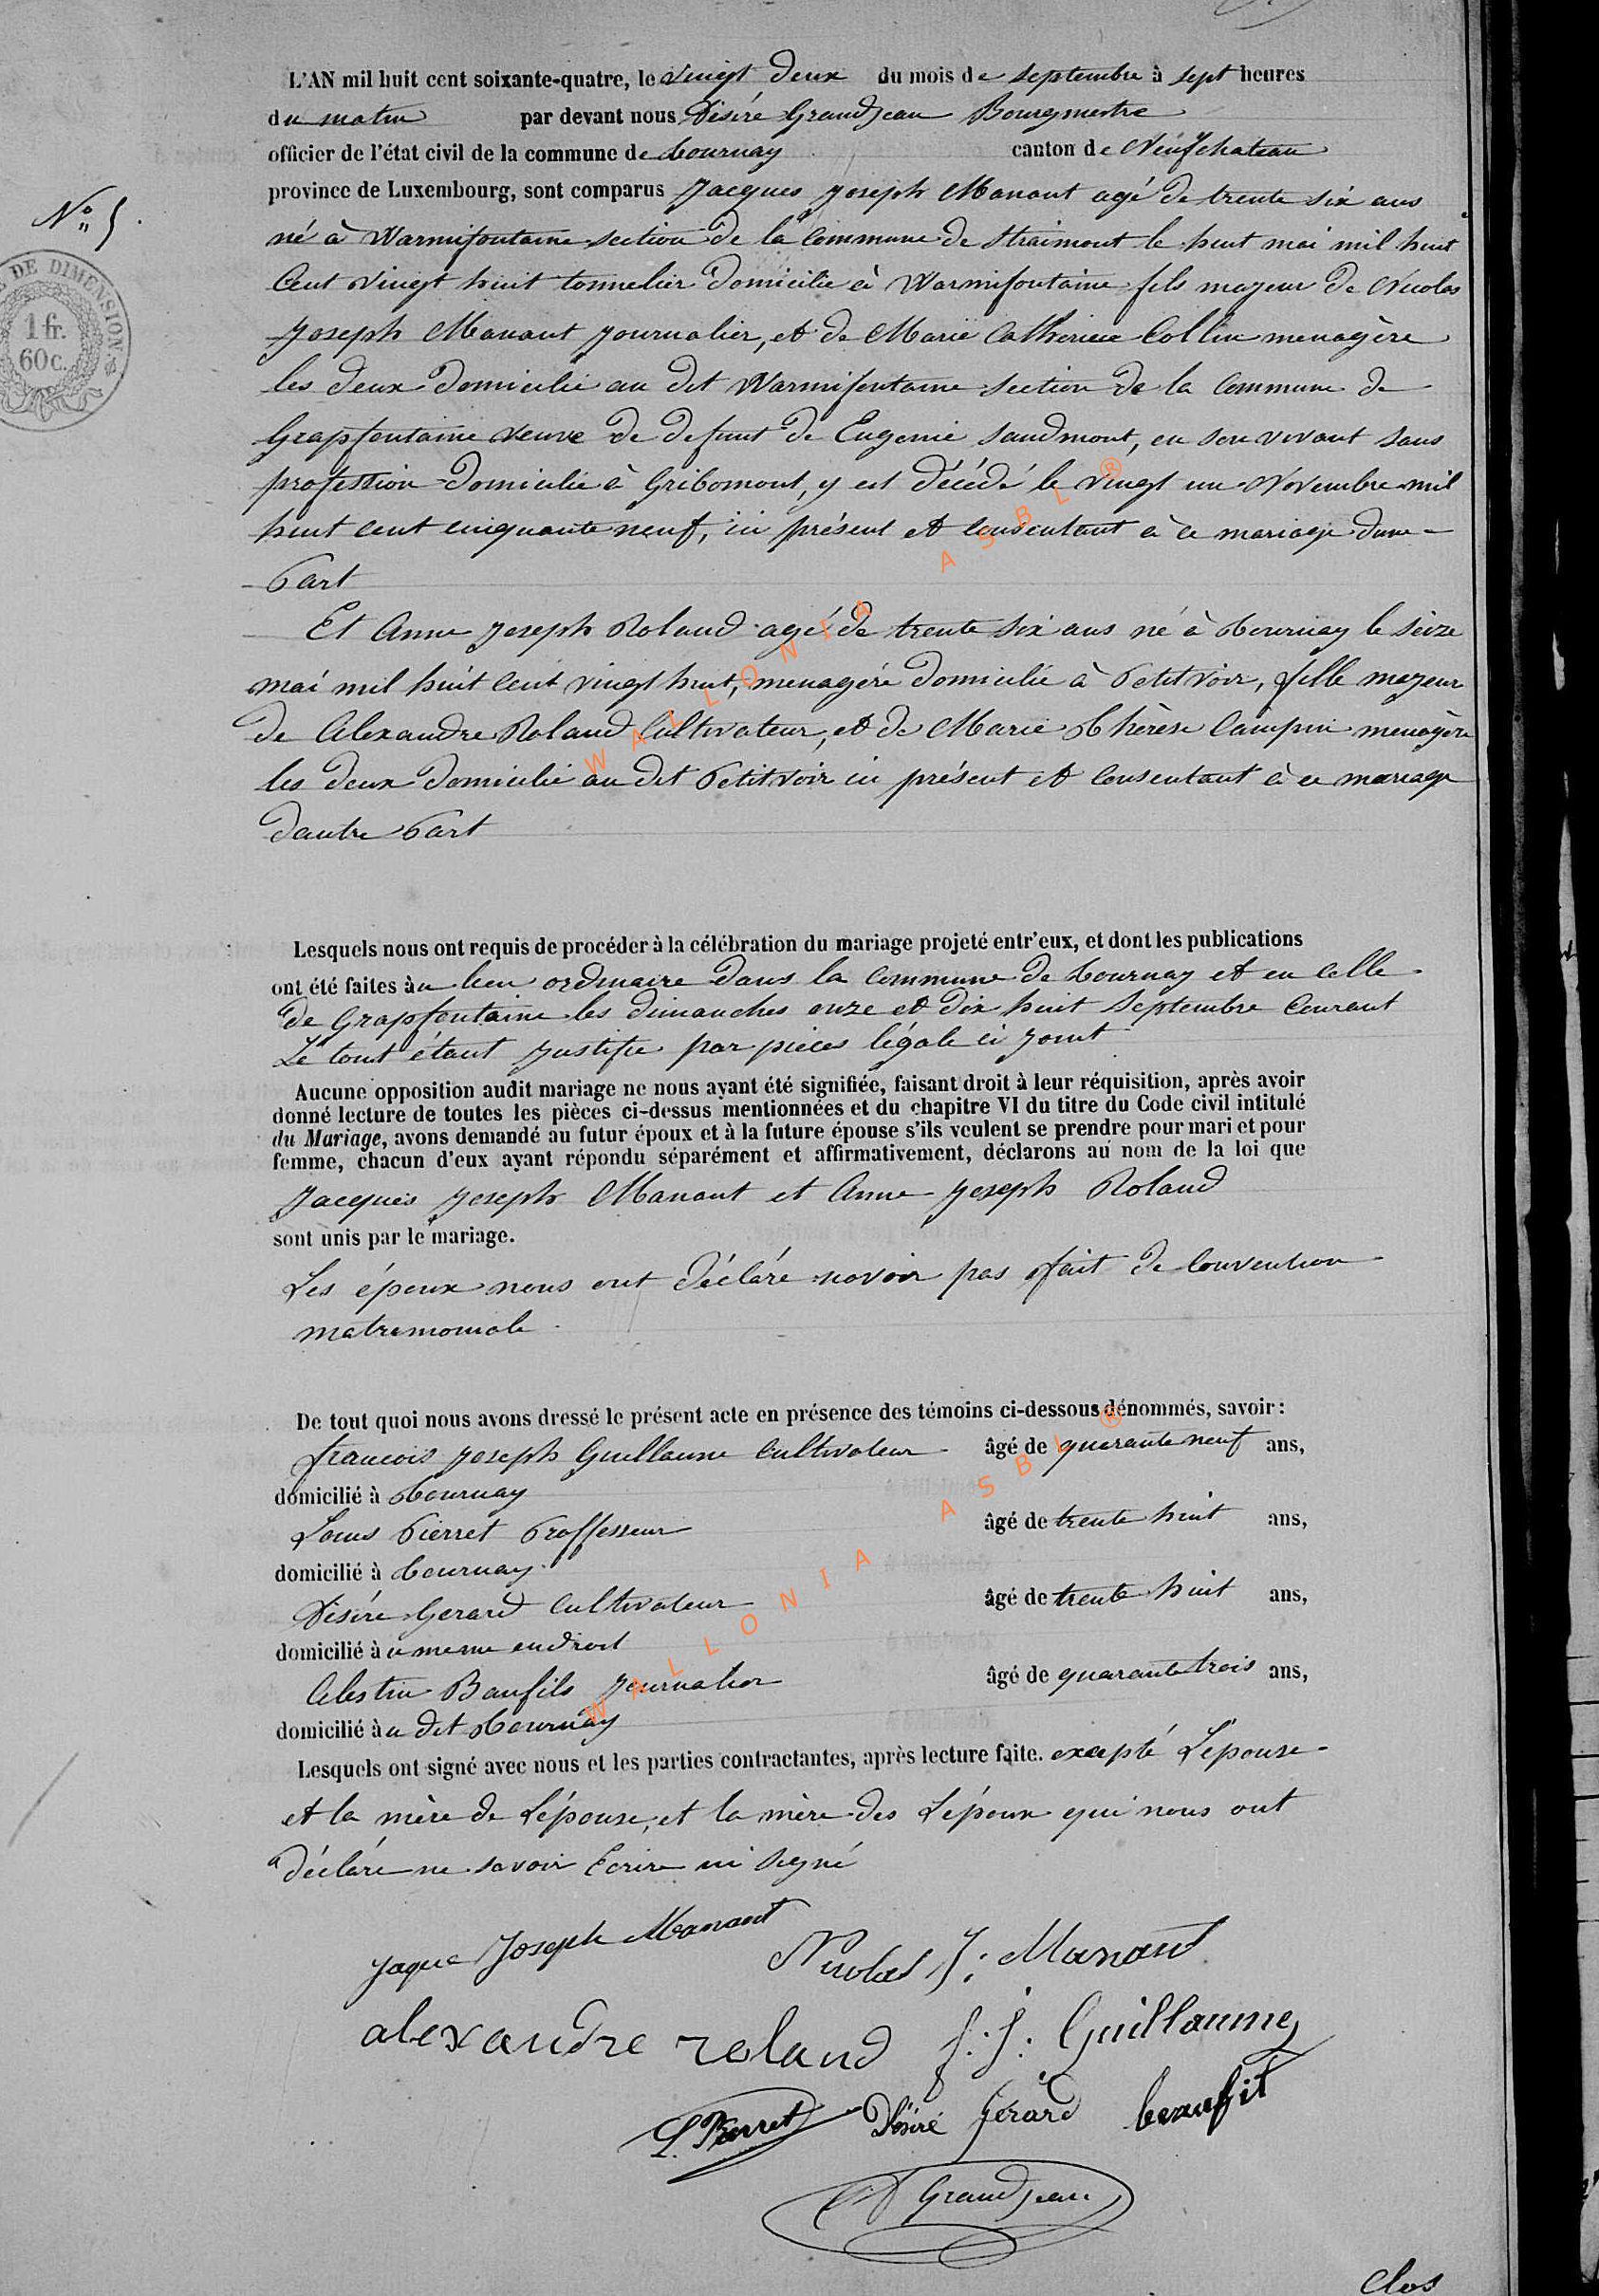 L'AN mil huit cent soixante-quatre, le vingt deux du mois de septembre à sept heures
du matin par devant nous Désiré Grandjean Bourgmestre
officier de l'état civil de la commune de Tournay canton de Neufchateau
province de Luxembourg, sont comparus Jacques Joseph Manant agé de trente six ans
N° 5.
né à Warmifontaine section de la commune de Straimont le huit mai mil huit
Cent vingt huit tonnelier domicilié à Warmifontaine fils majeur de Nicolas
DE DIMENSION.
1 fr.
60c.
Joseph Manant journalier, et de Marie Catherine Collin menagère
les deux domicilié au dit Warmifontaine section de la Commune de
Grapfontaine veuve de defunt de Eugenie Saudmont, en son vivant sans
profession domicilié à Gribomont, y est décédé le vingt un Novembre mil
huit cent cinquante neuf, ici présent et consentant à ce mariage dune
Part
Et Anne Joseph Roland agé de trente six ans né à Tournay le seize
mai mil huit cent vingt huit, menagère domicilié à Petitvoir, fille majeur
de Alexandre Roland Cultivateur, et de Marie Thérèse Campin menagère
les deux domicilié au dit Petitvoir ici présent et Consentant à ce mariage
dautre Part
WALLONIA ASBL ®
Lesquels nous ont requis de procéder à la célébration du mariage projeté entr'eux, et dont les publications
ont été faites au lieu ordinaire dans la commune de Tournay et en celle
de Grapfontaine les dimanches onze et dix huit Septembre Courant
Le tout étant justifié par pieces légale ci joint
Aucune opposition audit mariage ne nous ayant été signifiée, faisant droit à leur réquisition, après avoir
donné lecture de toutes les pièces ci-dessus mentionnées et du chapitre VI du titre du Code civil intitulé
du Mariage, avons demandé au futur époux et à la future épouse s'ils veulent se prendre pour mari et pour
femme, chacun d'eux ayant répondu séparément et affirmativement, déclarons au nom de la loi que
Jacques Joseph Manant et Anne Joseph Roland
sont unis par le mariage.
Les époux nous ont déclaré navoir pas fait de Convention
matrimoniale.
De tout quoi nous avons dressé le présent acte en présence des témoins ci-dessous dénommés, savoir:
francois Joseph Guillaume Cultivateur âgé de quarante neuf ans,
domicilié à Tournay
Louis Pierret Proffesseur âgé de trente huit ans,
domicilié à Tournay.
Désiré Gerard Cultivateur âgé de trente huit ans,
domicilié à u meme endroit
Celestin Baufils Journalier âgé de quarante trois ans,
domicilié à u dit Tournay
WALLONIA ASBL ®
Lesquels ont signé avec nous et les parties contractantes, après lecture faite. excepté L'épouse
et la mère de L'épouse, et la mère des L'époux qui nous ont
déclaré ne savoir Ecrire ni Signé
Jaque Joseph Manant Nicolas J: Manant
alexandre roland f. j. Guillaume
L. Pierret Désiré Gérard beaufit
D Grandjean
Clos